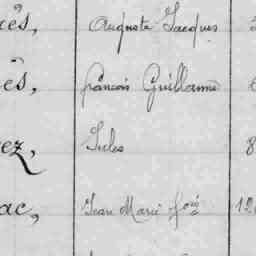 és, Auguste Jacques
és, françois Guillaume 6
ez, Jules 8
ac, Jean Marie fois 12